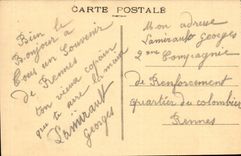 CARTE POSTALE
Bien le
Bonjour à
Tous un Souvenir
de Rennes
ton vieux copain
qui te serre la main
Lamirault
Georges
Mon adresse
Lamirault Georges
2eme Compagnie
de Renforcement
quartier du colombier
Rennes